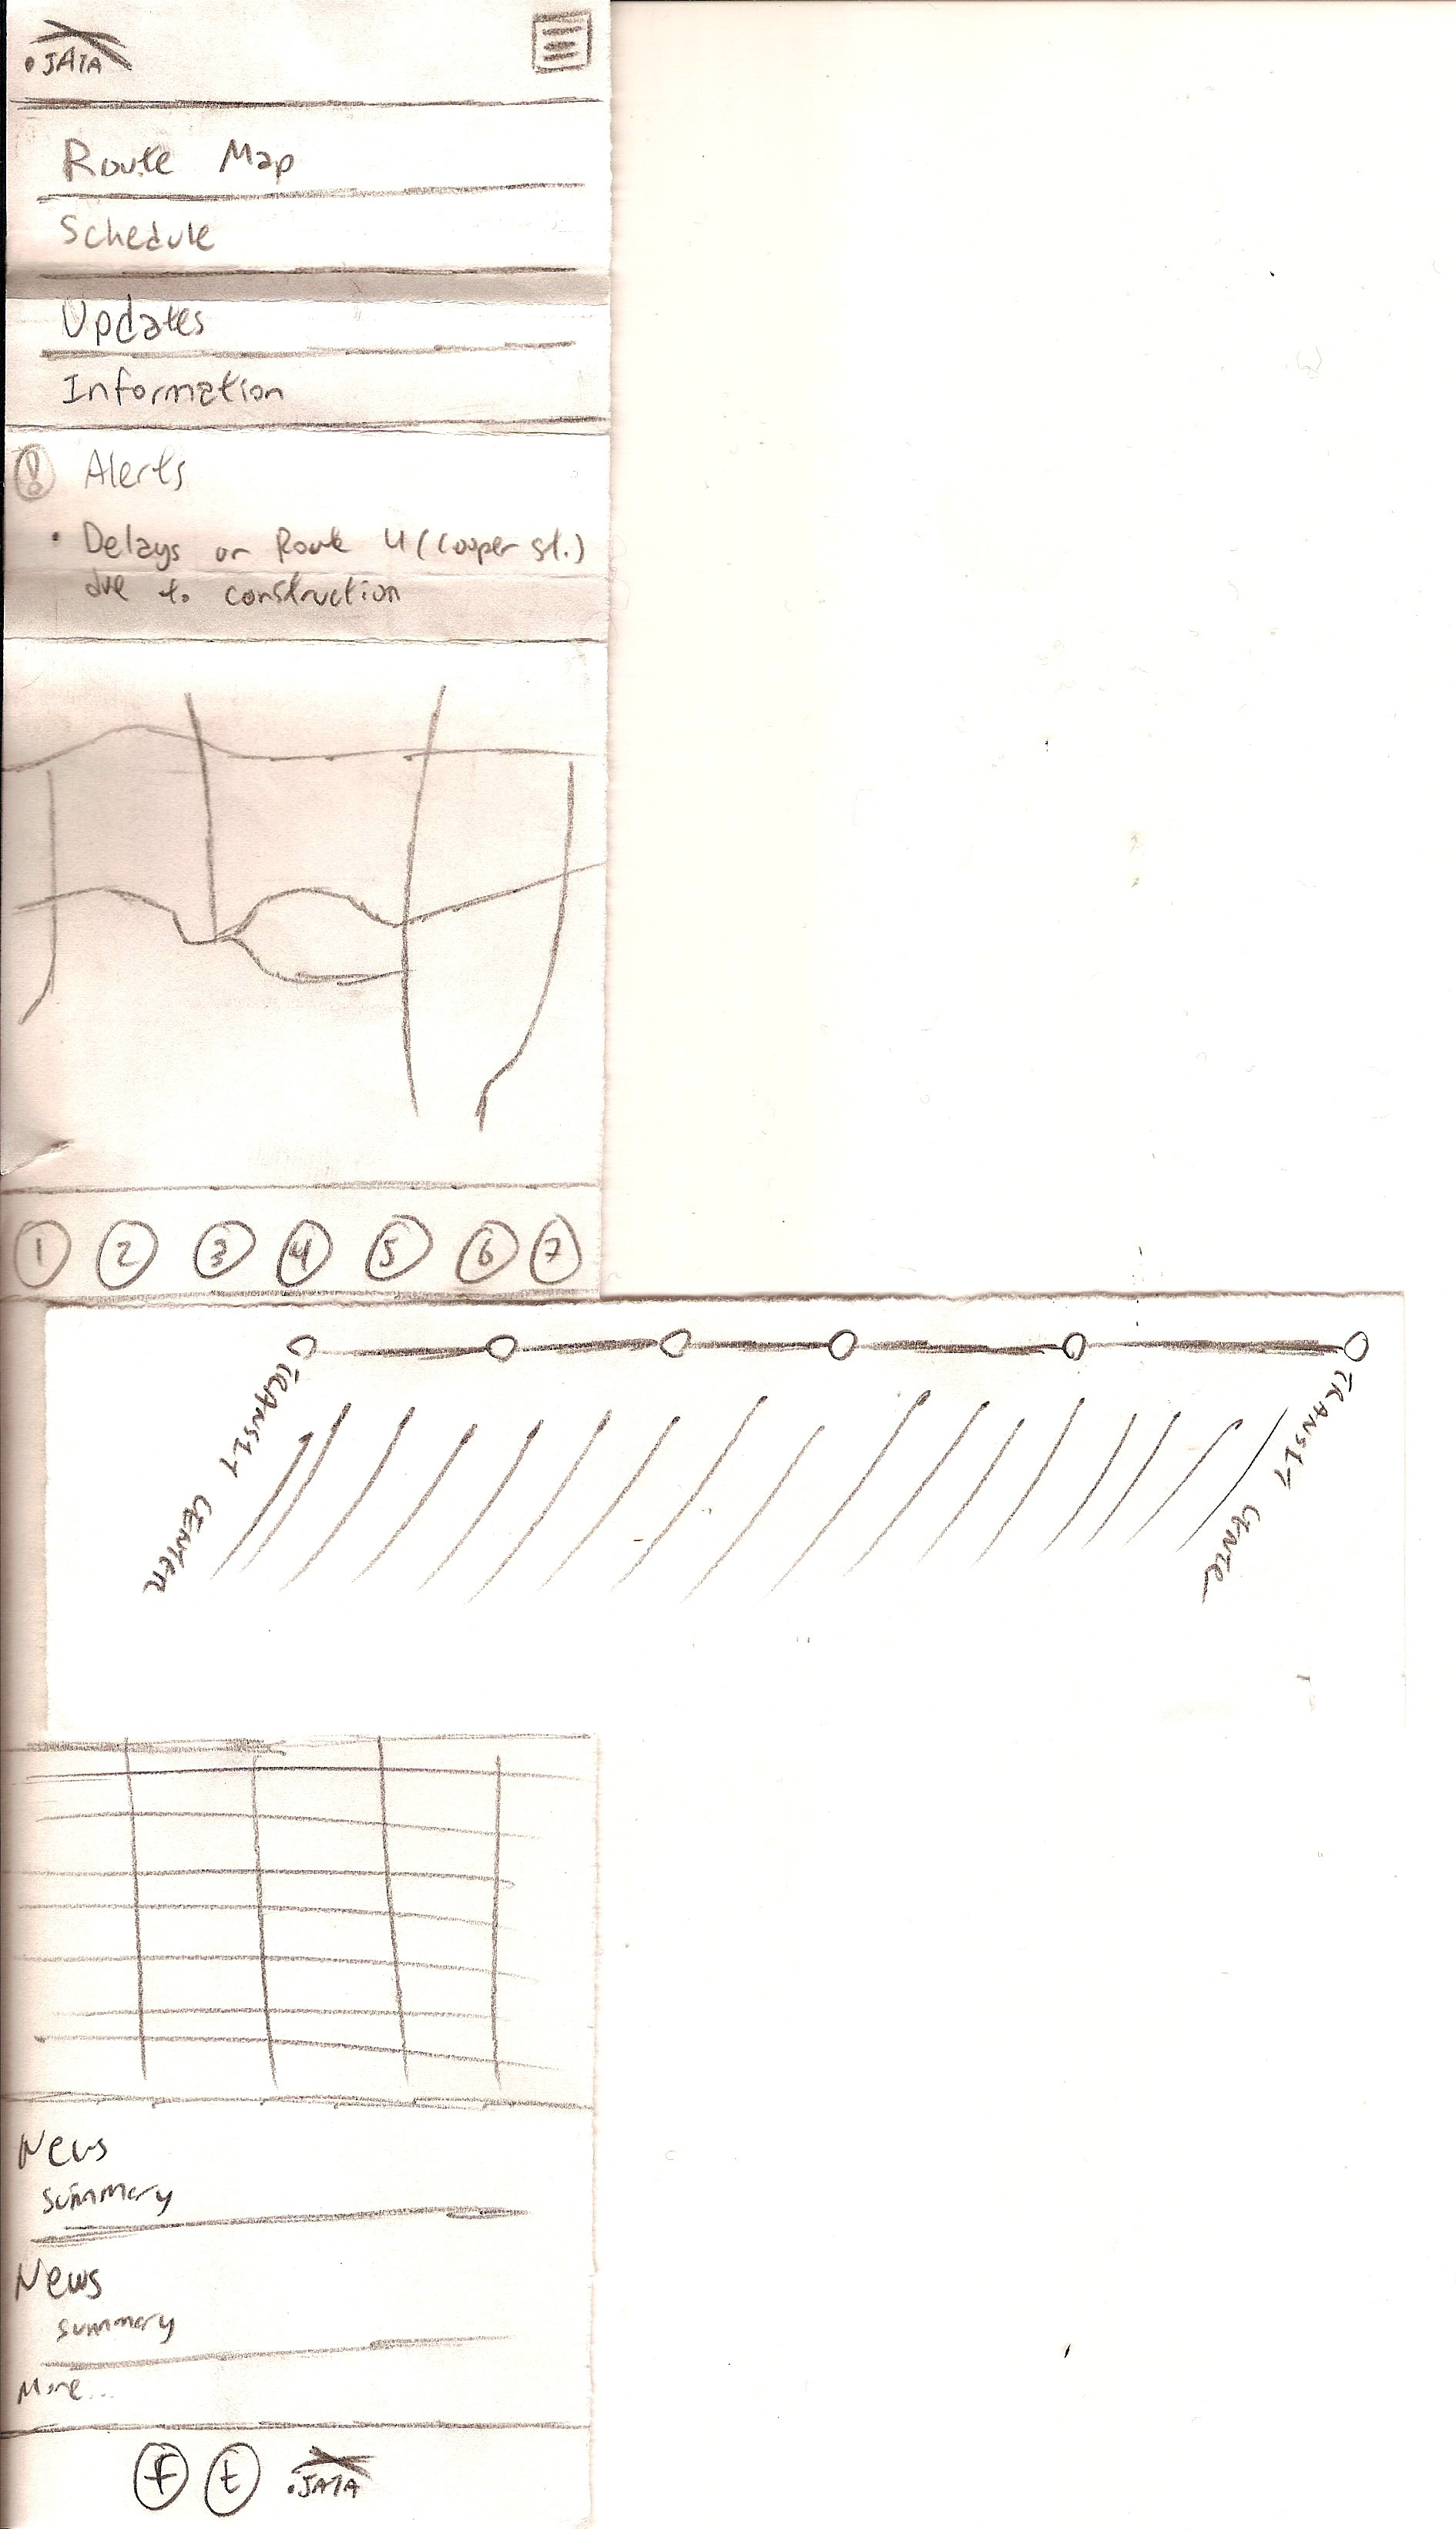 JATA
Route Map
Schedule
Updates
Information
! Alerts
• Delays on Route 4 (Cooper st.)
due to construction
1 2 3 4 5 6 7
TRANSIT CENTER
TRANSIT CENTER
News
summary
News
summary
More...
f t JATA